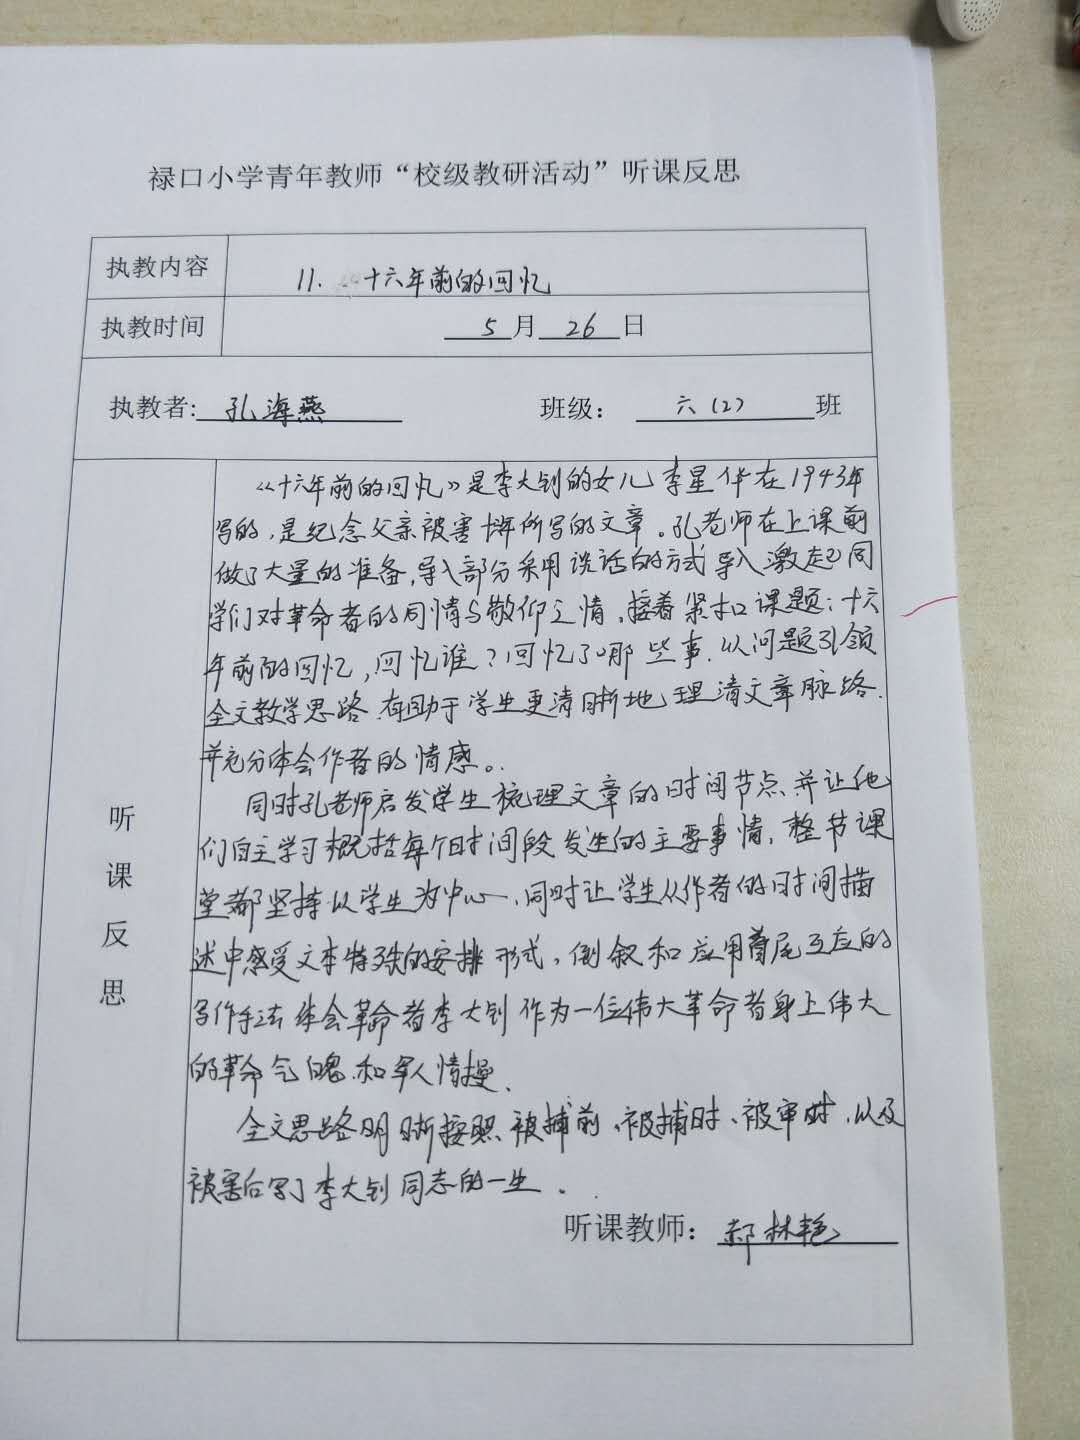 禄口小学青年教师“校级教研活动”听课反思
执教内容 11. 十六年前的回忆
执教时间 5月26日
执教者:孔海燕 班级：六(2)班
听课反思
《十六年前的回忆》是李大钊的女儿李星华在1943年
写的,是纪念父亲被害十六年所写的文章。孔老师在上课前
做了大量的准备,导入部分采用谈话的方式导入激起同
学们对革命者的同情与敬仰之情,接着紧扣课题:十六
年前的回忆,回忆谁?回忆了哪些事.以问题引领
全文教学思路.有助于学生更清晰地理清文章脉络.
并充分体会作者的情感。
同时孔老师启发学生梳理文章的时间节点、并让他
们自主学习概括每个时间段发生的主要事情,整节课
堂都坚持以学生为中心,同时让学生从作者的时间描
述中感受文本特殊的安排形式,倒叙和应用首尾互应的
写作手法体会革命者李大钊作为一位伟大革命者身上伟大
的革命气魄和军人情操.
全文思路明晰按照被捕前、被捕时、被审时、以及
被害后写了李大钊同志的一生.
听课教师：郝林艳